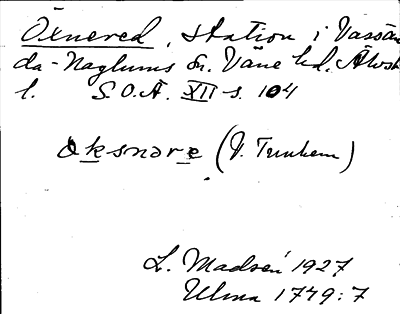 Öxnered, station i Vassän
da-Naglums sn. Väne hd. Älvsb
l. S.O.Ä. XII s. 104
øksnəre (V. Tunhem)
L. Madsén 1927
Ulma 1749:7